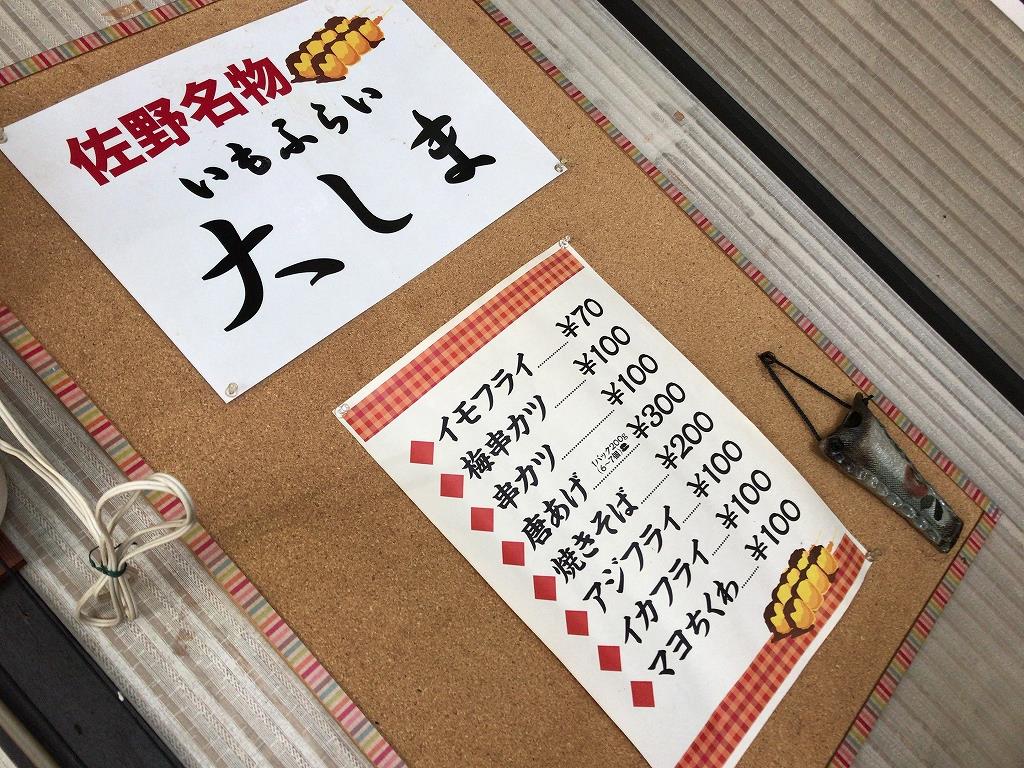 佐野名物
いもふらい
大しま
イモフライ………¥70
梅串カツ………¥100
串カツ………¥100
唐あげ 1パック200g (6~7個) ………¥300
焼きそば………¥200
アジフライ………¥100
イカフライ………¥100
マヨちくわ………¥100